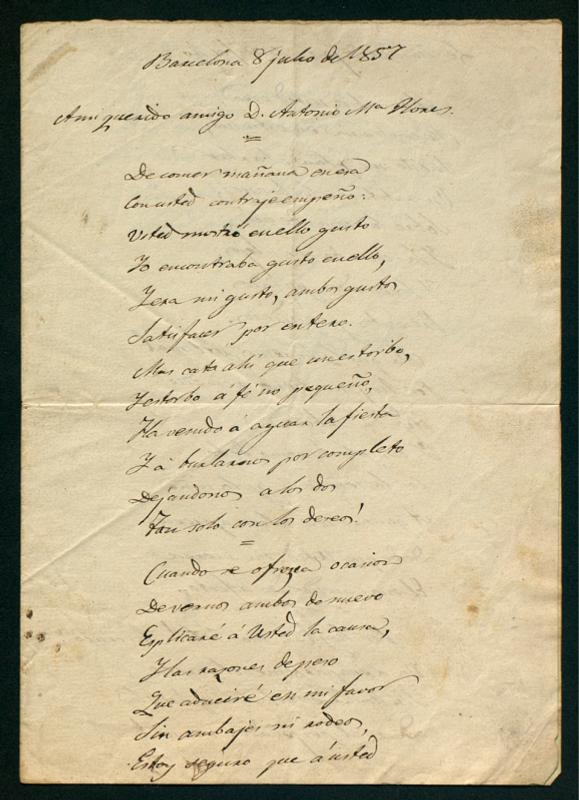 Barcelona 8 julio de 1857
A mi querido amigo D. Antonio Ma Flores.
De comer mañana en esa
Con usted contraje empeño:
Usted mostró en ello gusto
Yo encontraba gusto en ello,
Y era mi gusto, ambos gustos
Satisfacer por entero.
Mas cata ahí que un estorbo,
Y estorbo á fé no pequeño,
Ha venido á aguar la fiesta
Y á burlarnos por completo
Dejándonos a los dos
Tan solo con los deseos!
Cuando se ofrezca ocasion
De vernos ambos de nuevo
Esplicaré á Usted la causa,
Y las razones de peso
Que aduciré en mi favor
Sin ambajes ni rodeos,
Estoy seguro que á usted